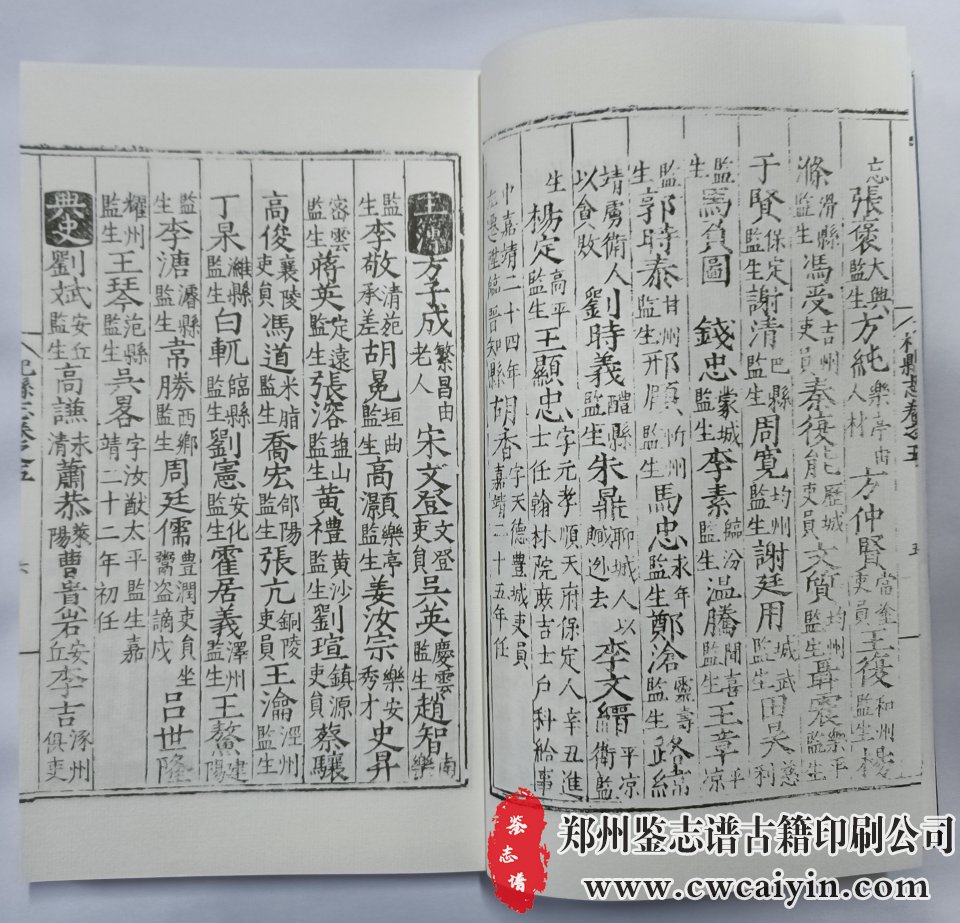 忘張褒大興監生方純樂亭由人材方仲賢當塗吏員王復和州監生楊
滌滑縣監生馮受古州吏員秦復能歷城吏員文質均州監生聶震樂平監生
于賢保定監生謝清巴縣監生周寬均州監生謝廷用城武監生田吴慈利
監生馬負圖錢忠蒙城監生李素臨汾監生温騰聞喜監生王章平凉
監生郭時泰甘州監生邢慎忻州監生馬忠永年監生鄭滄靈壽監生路
靖虜衛人以貪敗劉時義醴縣監生朱鼎聊城人以贓迯去李文縉平凉衛監
生楊定高平監生王顯忠字元孝順天府保定人辛丑進士任翰林院庶吉士户科給事
中嘉靖二十四年左遷謹臨晉知縣胡香字天德豐城吏員嘉靖二十五年任
杞縣志卷之五
五
主簿方子成繁昌由老人宋文登文登吏員吳英慶雲監生趙智南樂
監生李敬清苑承差胡冕垣曲監生高灝樂亭監生姜汝宗樂安秀才史昇
密雲監生蔣英定遠監生張溶盐山監生黄禮黄沙監生劉瑄鎮源吏員蔡驥
高俊襄陵吏員馮道米脂監生喬宏郃陽監生張亢銅陵吏員王瀹涇州監生
丁杲濰縣監生白軏臨縣監生劉憲安化監生霍居義澤州監生王鰲建陽
監生李溏濬縣監生常勝西鄉監生周廷儒豐潤吏員坐鬻盗謫戍吕世隆
耀州監生王琴范縣監生吳畧字汝猷太平監生嘉靖二十二年初任
典史劉斌安丘監生高謙永清蕭恭萊陽曹貴岩安丘李吉涿州俱吏
杞縣志卷之五
六
鉴志谱
郑州鉴志谱古籍印刷公司
www.cwcaiyin.com